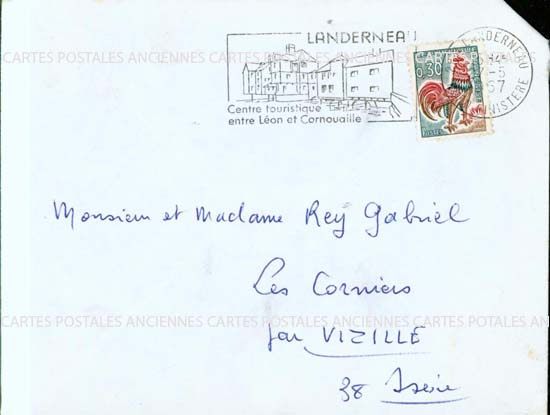 LANDERNEAU
Centre touristique
entre Léon et Cornouaille
0,30
LANDERNEAU
FINISTERE
CARTES POSTALES ANCIENNES CARTES POSTALES ANCIENNES CARTES POSTALES ANCIENNES
Monsieur et Madame Rey Gabriel
Les Corniers
CARTES POSTALES ANCIENNES CARTES POSTALES ANCIENNES CARTES POTALES ANCIENNES
par VIZILLE
38 Isère